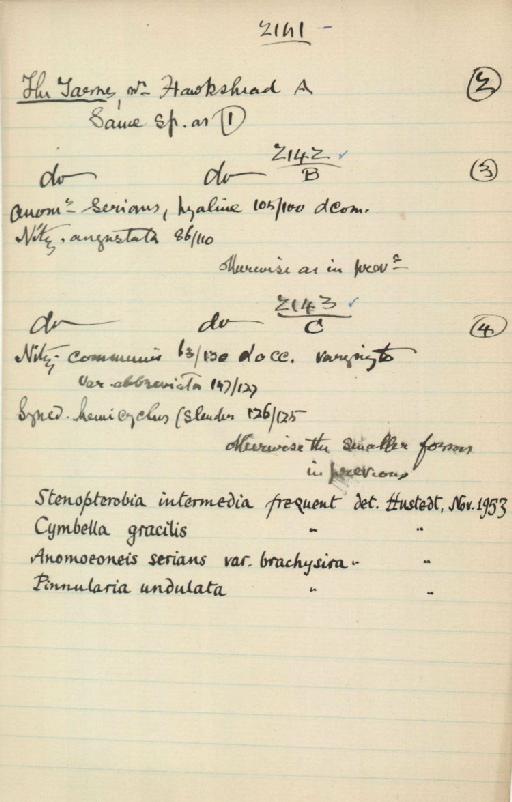 2141 -
The Tarns, nr. Hawkshead A (2)
Same sp. as (1)
do do 2142 ✓ B (3)
anomo. serians, hyaline 105/100 dcom.
Nitz. angustata 86/110
Otherwise as in prev.
do do 2143 ✓ C (4)
Nitz. communis 63/130 do cc. varying to
var. abbreviata 147/127
Syned. hemicyclus (slender 126/125
Otherwise the smaller forms
in previous
Stenopterobia intermedia frequent det. Hustedt, Nov. 1953
Cymbella gracilis " "
Anomoeoneis serians var. brachysira " "
Pinnularia undulata " "